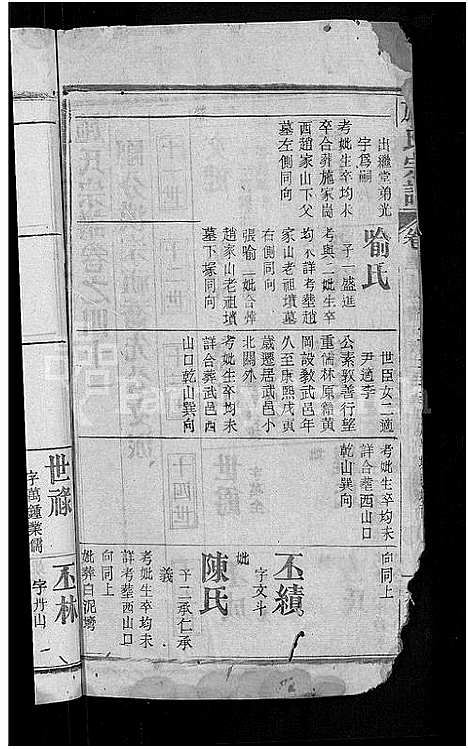 出繼堂弟光
字爲嗣
考妣生卒均未
卒合葬施家崗
西趙家山下父
墓左側同向
喻氏
子一盛進
考與二妣生卒
均未詳考塟趙
家山老祖墳墓
右側同向
張喻二妣合塟
趙家山老祖墳
墓下塚同向
世臣女二適
尹適李
公素敦善行望
重儒林原籍黄
岡設教武邑年
八至康熙戊寅
歲遷居武邑小
北關外
考妣生卒均未
詳合葬武邑西
山口乾山巽向
考妣生卒均未
詳合塟西山口
乾山巽向
向同上
丕績
字文斗
妣
陳氏
子二承仁承
義
考妣生卒均未
詳考塟西山口
向同上
妣葬白泥塆
世祿
字萬鍾業儒
丕林
字丹山